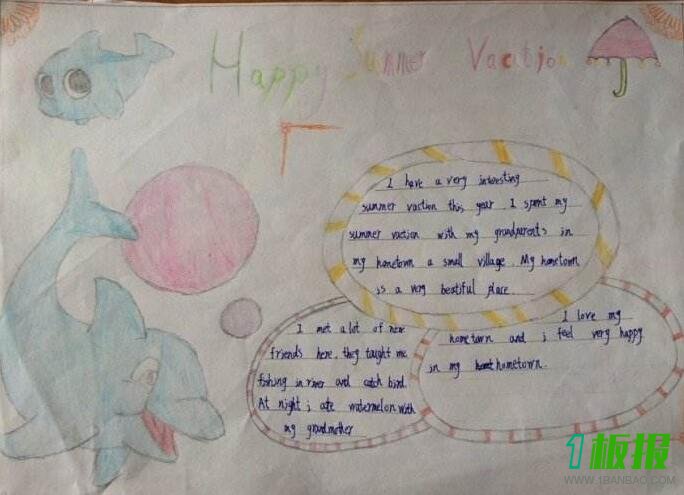 Happy Summer Vacation
I have a very interesting
summer vaction this year. I spent my
summer vaction with my grandparents in
my hometown a small village. My hometown
is a very beatiful place.
I met a lot of new
friends here, they taught me
fishing in river and catch bird.
At night i ate watermelon with
my grandmother
I love my
hometown and i feel very happy
in my hometown.
1板报
WWW.1BANBAO.COM